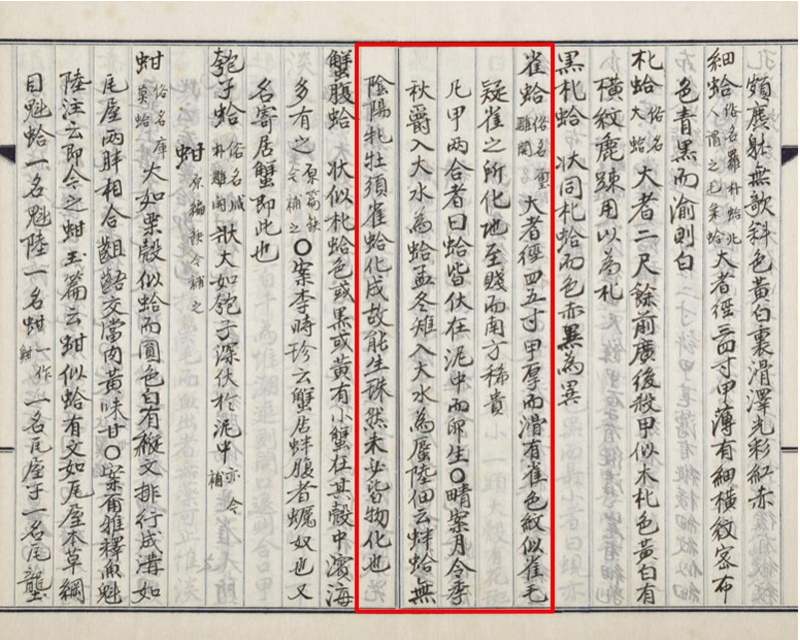 頗廣䠶無欹斜色黃白裏滑澤光彩紅赤
細蛤俗名羅朴蛤北人謂之毛朶蛤大者徑三四寸甲薄有細橫紋密布
色青黑而渝則白
札蛤俗名大蛤大者二尺餘前廣後殺甲似木札色黃白有
橫紋麁踈用以為札
黑札蛤 狀同札蛤而色亦黑為異
雀蛤俗名璽雕開大者徑四五寸甲厚而滑有雀色紋似雀毛
疑雀之所化地至賤而南方稀貴
凡甲兩合者曰蛤皆伏在泥中而卵生〇晴案月令季
秋爵入大水為蛤孟冬雉入大水為蜃陸佃云蚌蛤無
陰陽牝牡須雀蛤化成故能生珠然未必皆物化也
蟹腹蛤 狀似札蛤色或黑或黃有小蟹在其殼中濱海
多有之原篇缺今補之〇案李時珍云蟹居蚌腹者蠣奴也又
名寄居蟹即此也
匏子蛤俗名咸朴雕開狀大如匏子深伏於泥中亦今補
蚶原編缺今補之
蚶俗名庫莫蛤大如栗殼似蛤而圓色白有縱文排行成溝如
瓦屋兩胖相合齟齬交當肉黃味甘〇案爾雅釋魚魁
陸注云即今之蚶玉篇云蚶似蛤有文如瓦屋本草綱
目魁蛤一名魁陸一名蚶一作魽一名瓦屋子一名瓦壟